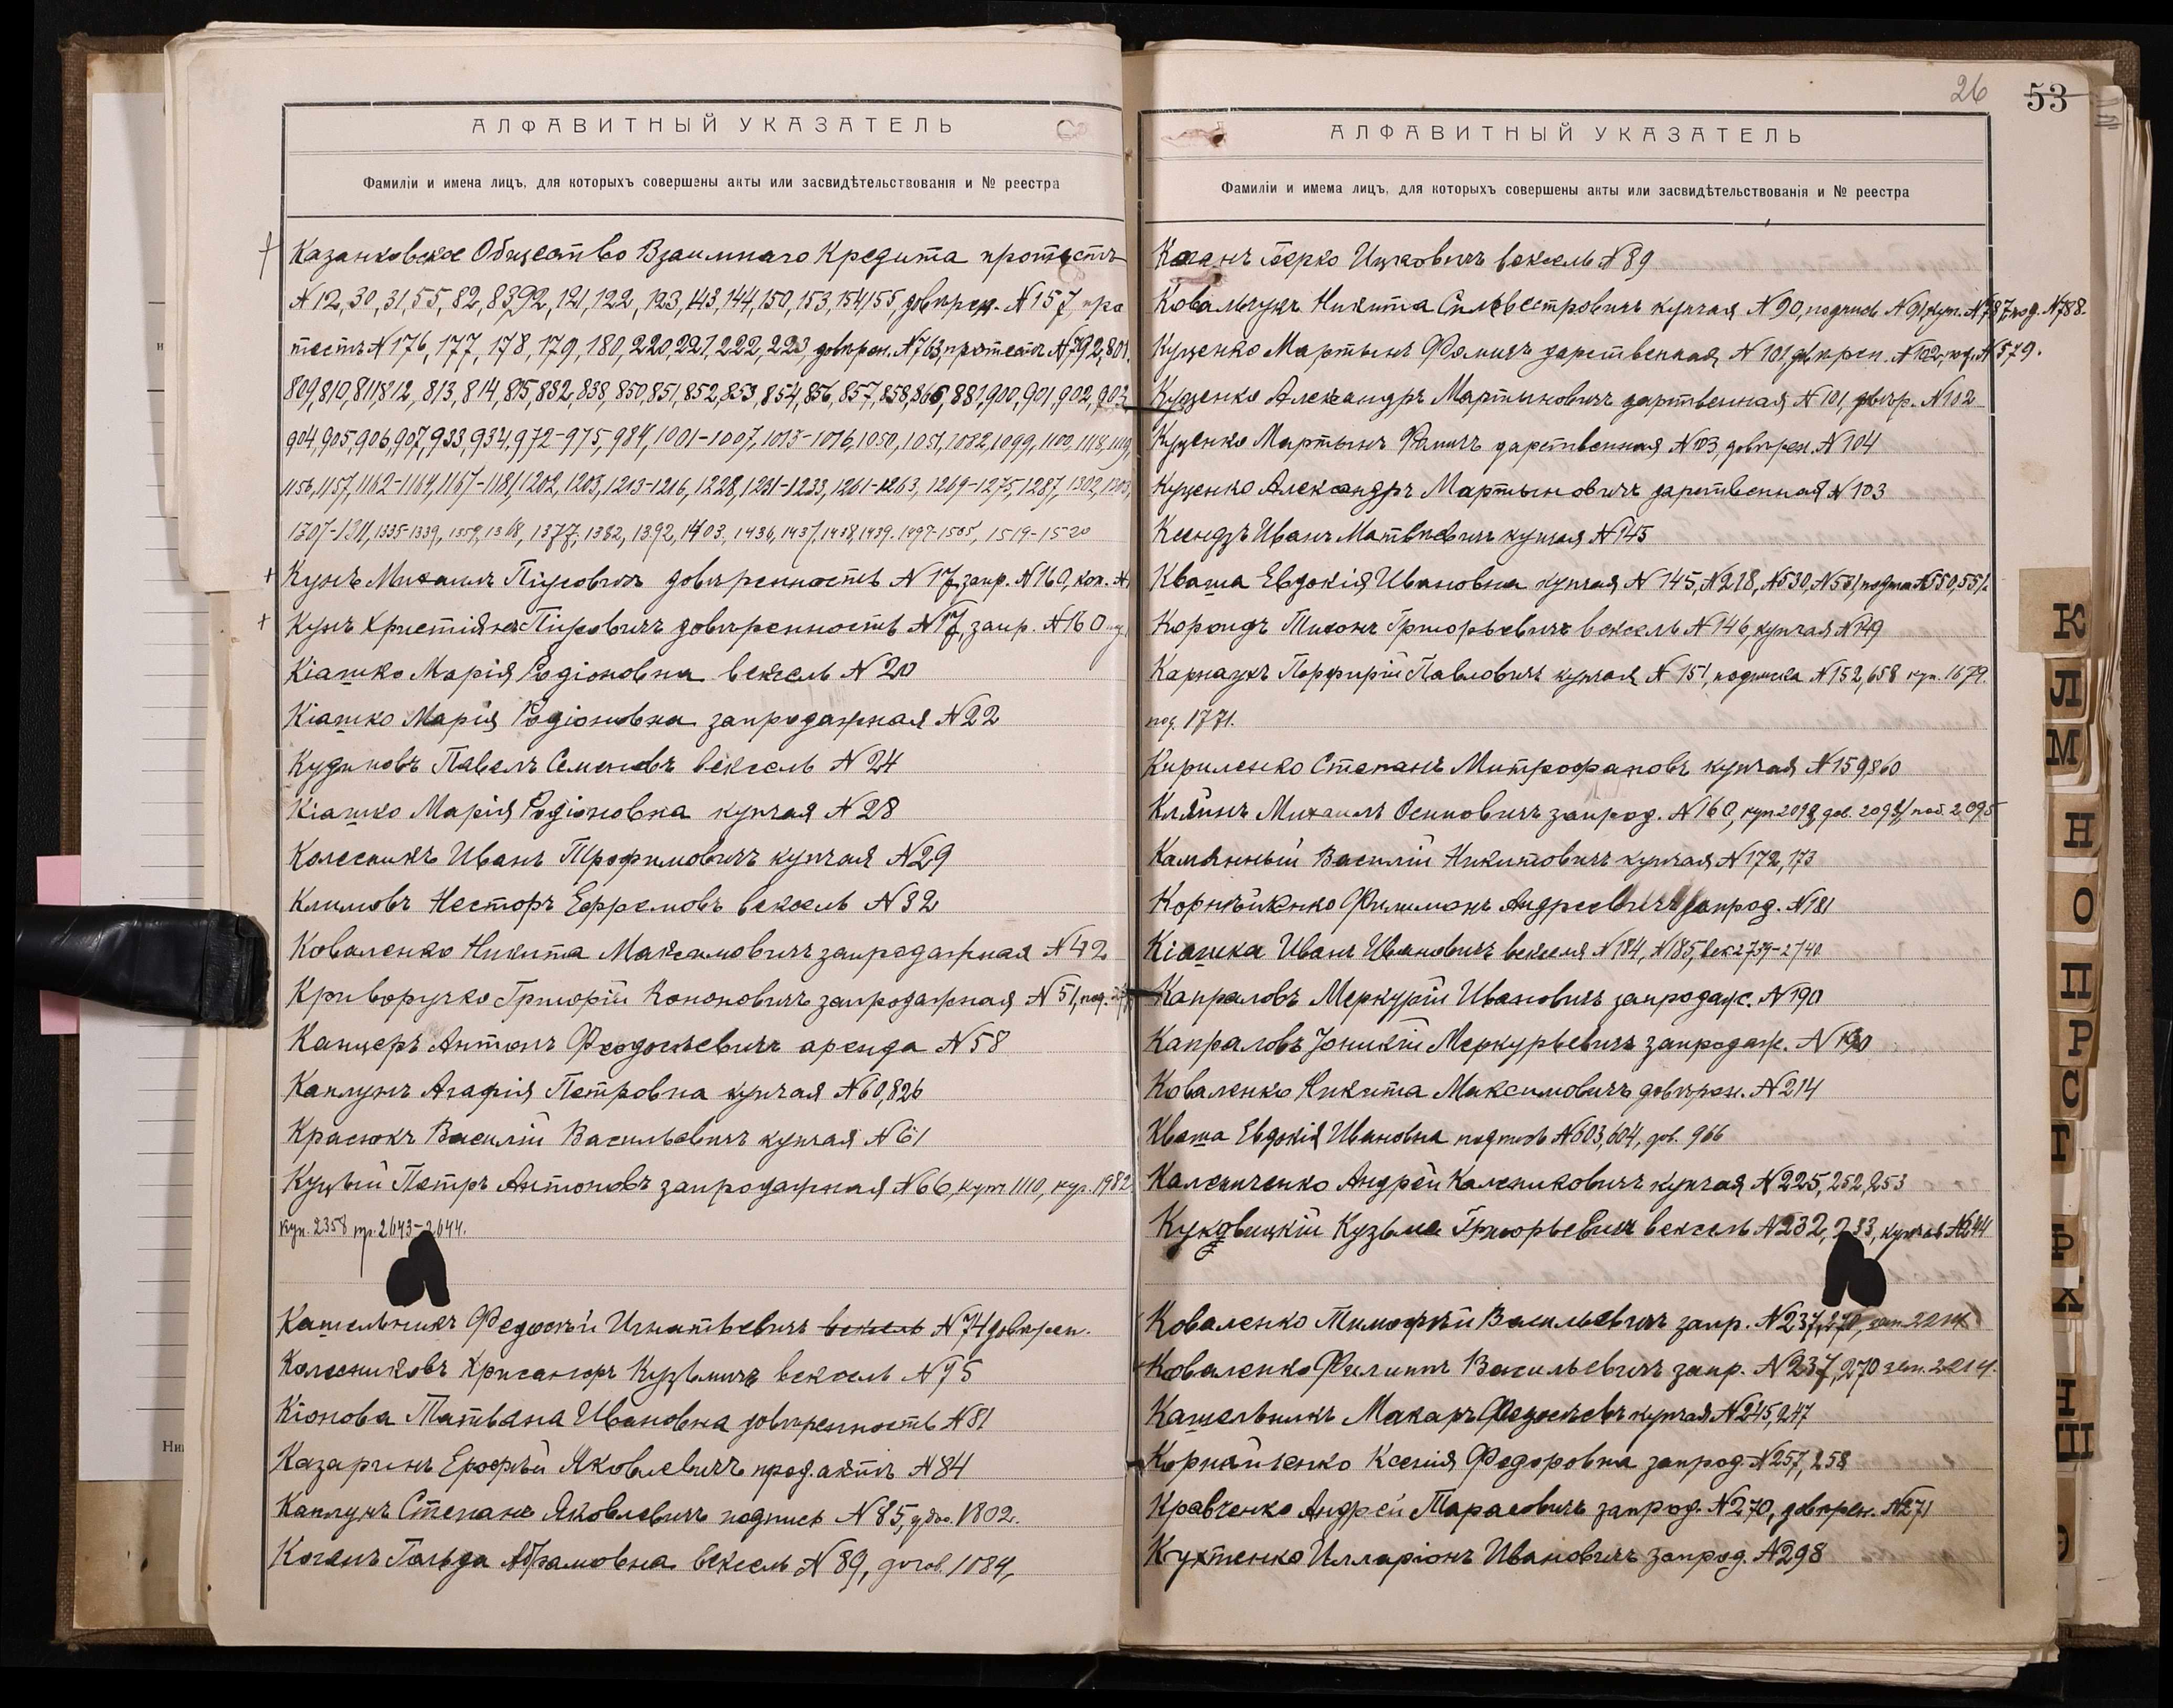 АЛФАВИТНЫЙ УКАЗАТЕЛЬ
Фамиліи и имена лицъ, для которыхъ совершены акты или засвидѣтельствованія и № реестра
Казанковское Общество Взаимнаго Кредита протестъ
N 12, 30, 31, 55, 82, 83, 92, 121, 122, 123, 143, 144, 150, 153, 154, 155, довѣрен. N 157, про
тестъ N 176, 177, 178, 179, 180, 220, 221, 222, 223 довѣрен. N 763, протестъ N 792, 801,
809, 810, 811, 812, 813, 814, 815, 832, 838, 850, 851, 852, 853, 854, 856, 857, 858, 866, 881, 900, 901, 902, 903
904, 905, 906, 907, 933, 934, 972-975, 984, 1001-1007, 1013-1016, 1050, 1051, 1082, 1099, 1100, 1118, 1119,
1156, 1157, 1162-1164, 1167-1181, 1202, 1203, 1213-1216, 1228, 1231-1233, 1261-1263, 1269-1275, 1287, 1302, 1303,
1307-1311, 1335-1339, 1359, 1368, 1377, 1382, 1392, 1403, 1436, 1437, 1438, 1439, 1497-1505, 1519-1520
Кунъ Михаилъ Піусовичъ довѣренность N 17, запр. N 160, коп. N
Кунъ Христіянъ Піусовичъ довѣренность N 17, запр. N 160
Кіашко Марія Родіоновна вексель N 20
Кіашко Марія Родіоновна запродажная N 22
Кудиновъ Павелъ Семеновъ вексель N 24
Кіашко Марія Родіоновна купчая N 28
Колесникъ Иванъ Трофимовичъ купчая N 29
Климовъ Несторъ Ефремовъ вексель N 32
Коваленко Никита Максимовичъ запродажная N 42
Криворучко Григорій Кононовичъ запродажная N 51, под.
Канцеръ Антонъ Феодосьевичъ аренда N 58
Каплунъ Агафія Петровна купчая N 60, 826
Краснокъ Василій Васильевичъ купчая N 61
Куцый Петръ Антоновъ запродажная N 66, купч 1110, куп. 1982
куп. 2358 пр. 2643-2644.
Кашельникъ Федосѣй Игнатьевичъ вексель N 74 довѣрен.
Колесниковъ Хрисанфъ Кузьмичъ вексель N 75
Кіонова Татьяна Ивановна довѣренность N 81
Казаринъ Ерофѣй Яковлевичъ прод. актъ N 84
Каплунъ Степанъ Яковлевичъ подпись N 85, 1802.
Коганъ Гольда Абрамовна вексель N 89, догов. 1084,
26
53
АЛФАВИТНЫЙ УКАЗАТЕЛЬ
Фамиліи и имема лицъ, для которыхъ совершены акты или засвидѣтельствованія и № реестра
Коганъ Берко Ицковичъ вексель N 89
Ковальчукъ Никита Сильвестровичъ купчая N 90, подпись N 91, куп. N 787, под. N 788.
Куценко Мартынъ Фомичъ дарственная N 101, довѣрен. N 102, под. N 579.
Куценко Александръ Мартыновичъ дарственная N 101, довѣр. N 102
Куценко Мартынъ Фомичъ дарственная N 103, довѣрен. N 104
Куценко Александръ Мартыновичъ дарственная N 103
Ксендзъ Иванъ Матвѣевичъ купчая N 145
Кваша Евдокія Ивановна купчая N 145, N 218, N 530, N 531, подпись N 550, 551.
Короидъ Тихонъ Григорьевичъ вексель N 146, купчая N 149
Карнаухъ Порфирій Павловичъ купчая N 151, подписка N 152, 658 куп. 1679.
под. 1771.
Кириленко Степанъ Митрофановъ купчая N 159, 860
Кляйнъ Михаилъ Осиповичъ запрод. N 160, куп 2093, дов. 2094, под. 2095
Камянный Василій Никитовичъ купчая N 172, 173
Корнѣйенко Филимонъ Андреевичъ запрод. N 181
Кіашка Иванъ Ивановичъ векселя N 184, N 185, век 2739-2740
Капраловъ Меркурій Ивановичъ запродаж. N 190
Капраловъ Іоникій Меркурьевичъ запродаж. N 190
Коваленко Никита Максимовичъ довѣрен. N 214
Кваша Евдокія Ивановна подпись N 603, 604, дов. 966
Калениченко Андрей Калениковичъ купчая N 225, 252, 253
Куновицкій Кузьма Григорьевичъ вексель N 232, 233, купчая N 644
Коваленко Тимофѣй Васильевичъ запр. N 237, 270, зап. 2214
Коваленко Филиппъ Васильевичъ запр. N 237, 270 зап. 2214.
Кашельникъ Макаръ Федосѣевъ купчая N 245, 247
Корнайченко Ксенія Федоровна запрод. N 257, 258
Кравченко Андрей Тарасовичъ запрод. N 270, довѣрен. N 271
Кухтенко Илларіонъ Ивановичъ запрод. N 298
К
Л
М
Н
О
П
Р
С
Т
Ф
Х
Ш
Э